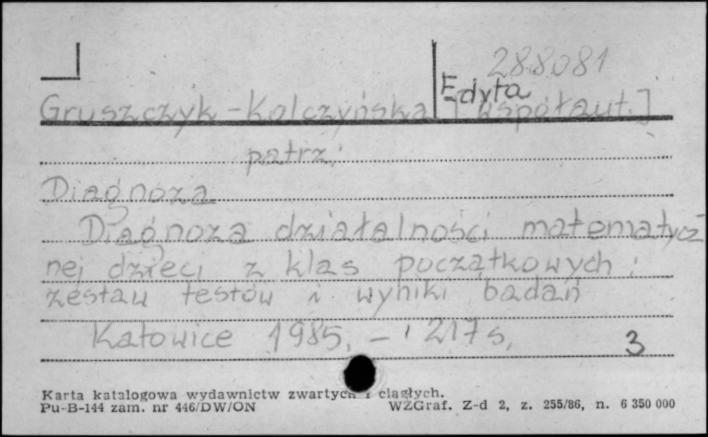 288081
Edyta
Gruszczyk-Kolczyńska [współaut.]
patrz:
Diagnoza
Diagnoza działalności matematycz
nej dzieci z klas początkowych :
zestaw testów i wyniki badań
Katowice 1985. - 217 s.
3
Karta katalogowa wydawnictw zwartych i ciągłych.
Pu-B-144 zam. nr 446/DW/ON WZGraf. Z-d 2, z. 255/86, n. 6 350 000